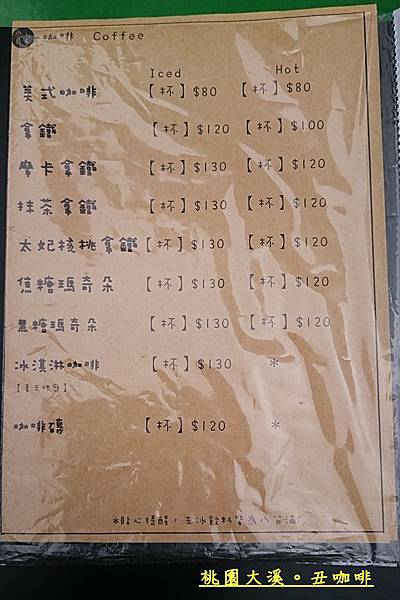 咖啡 Coffee
Iced Hot
美式咖啡 【杯】$80 【杯】$80
拿鐵 【杯】$120 【杯】$100
摩卡拿鐵 【杯】$130 【杯】$120
抹茶拿鐵 【杯】$130 【杯】$120
太妃核桃拿鐵 【杯】$130 【杯】$120
焦糖瑪奇朵 【杯】$130 【杯】$120
黑糖瑪奇朵 【杯】$130 【杯】$120
冰淇淋咖啡 【杯】$130 *
【夏天限定】
咖啡磚 【杯】$120 *
*貼心提醒，去冰飲料皆為八分滿
桃園大溪。丑咖啡